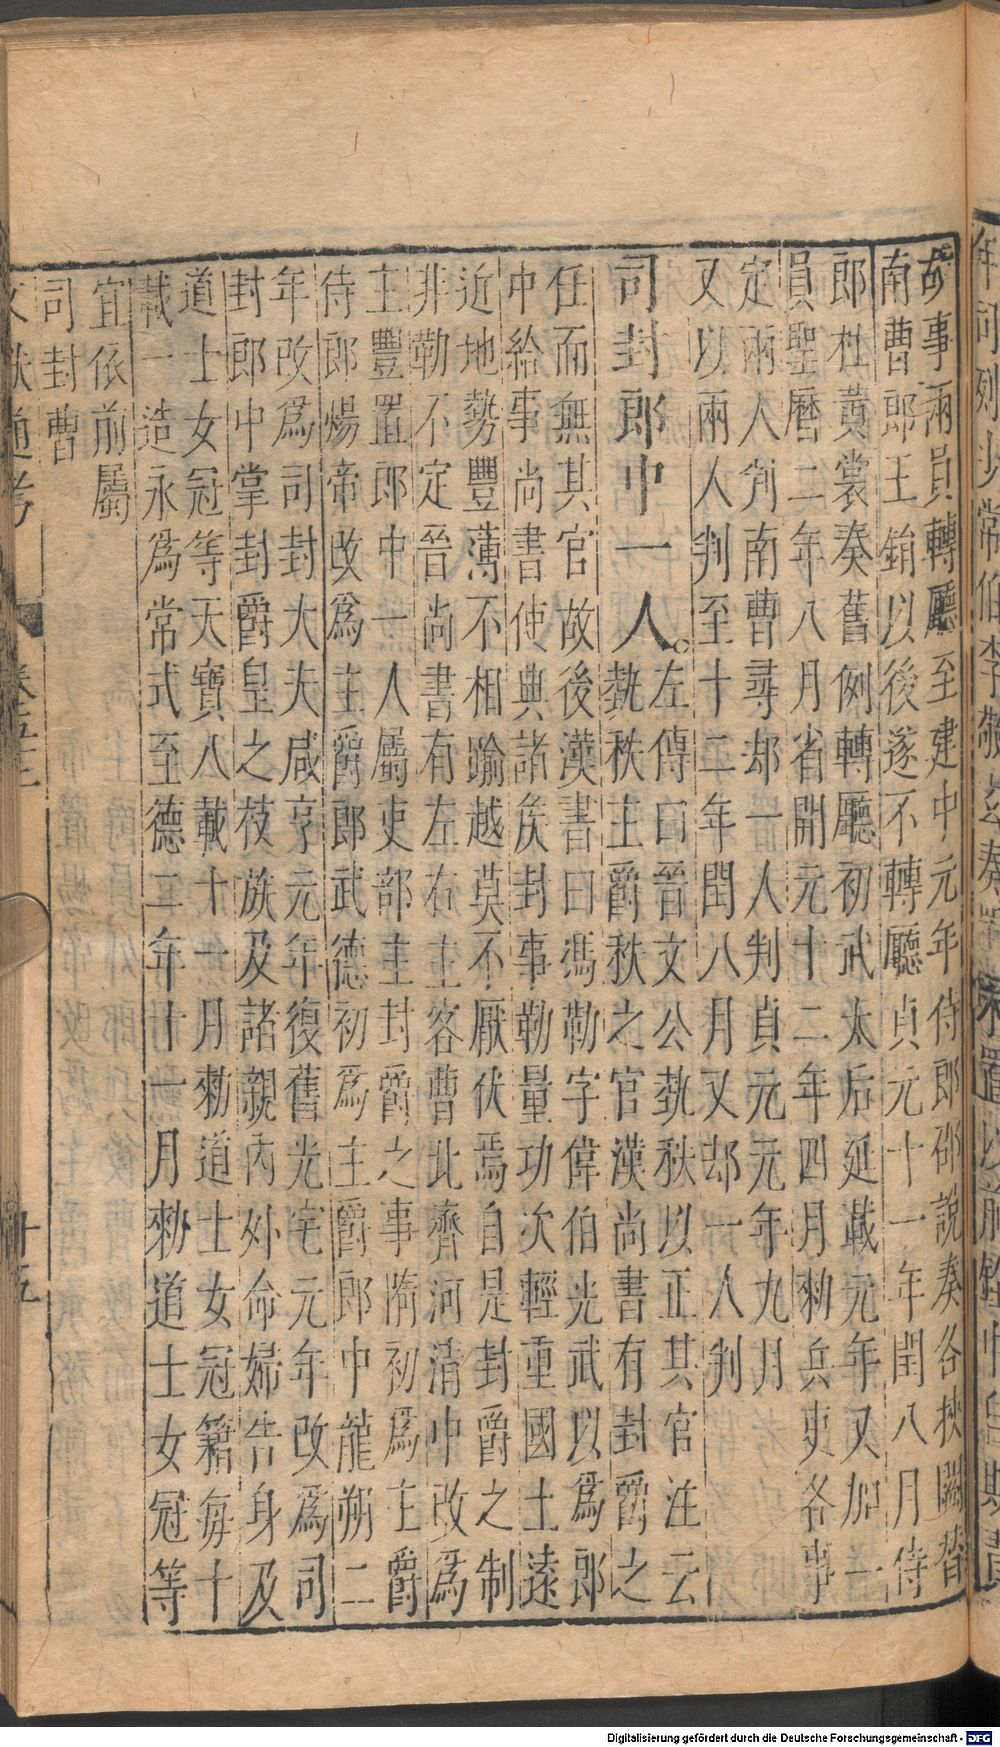 故事兩員轉廳至建中元年侍郎邵說奏各挾闕替
南曹郎王鋿以後遂不轉廳貞元十一年閏八月侍
郎杜黃裳奏舊例轉廳初武太后延載元年又加一
員聖曆二年八月省開元十二年四月勑兵吏各專
定兩人判南曹尋却一人判貞元元年九月
又以兩人判至十二年閏八月又却一人判
司封郎中一人
左傳曰晉文公執秩以正其官注云
執秩主爵秩之官漢尚書有封爵之
任而無其官故後漢書曰馮勒字偉伯光武以為郎
中給事尚書使典諸矦封事勒量功次輕重國土遠
近地勢豐薄不相踰越莫不厭伏焉自是封爵之制
非勒不定晉尚書有左右主客曹北齊河清中改為
主豐置郎中一人屬吏部主封爵之事隋初為主爵
侍郎煬帝改為主爵郎武德初為主爵郎中龍朔二
年改為司封大夫咸亨元年復舊光宅元年改為司
封郎中掌封爵皇之枝族及諸親內外命婦告身及
道士女冠等天寶八載十一月勑道士女冠籍每十
載一造永為常式至德二年十一月勑道士女冠等
宜依前屬
司封曹
文獻通考
卷五十二
十五
Digitalisierung gefördert durch die Deutsche Forschungsgemeinschaft - DFG